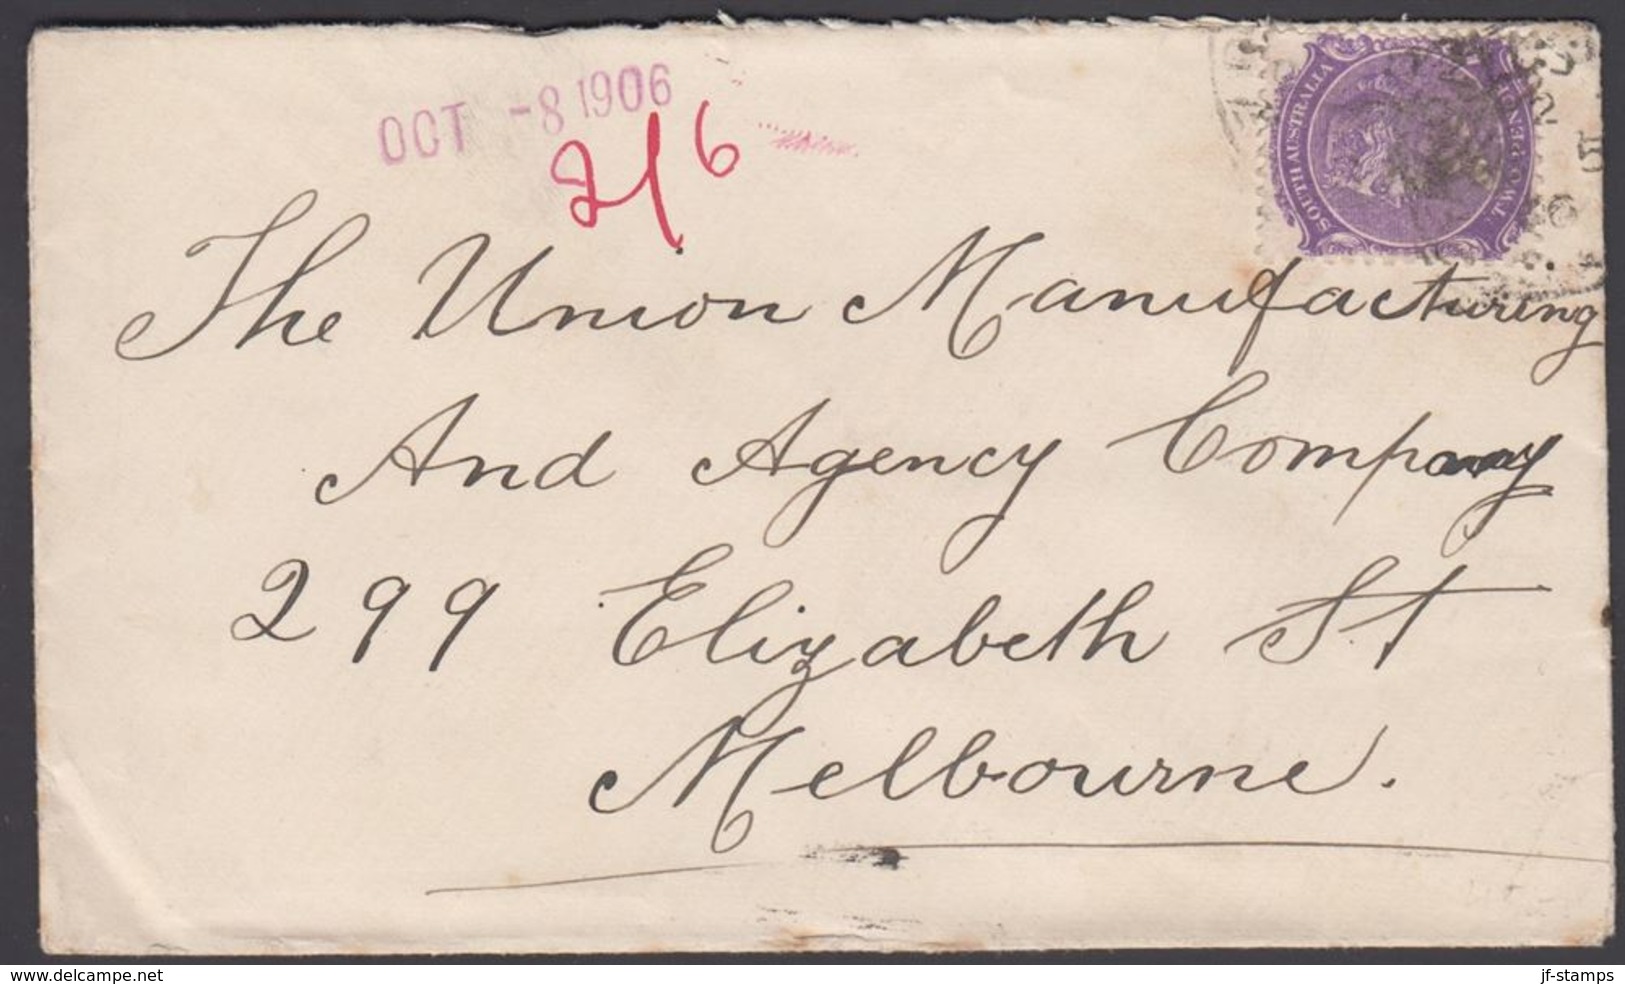 OCT -8 1906
2/6
SOUTH AUSTRALIA
TWO PENCE
The Union Manufacturing
And Agency Company
299 Elizabeth St
Melbourne.
www.delcampe.net
jf-stamps